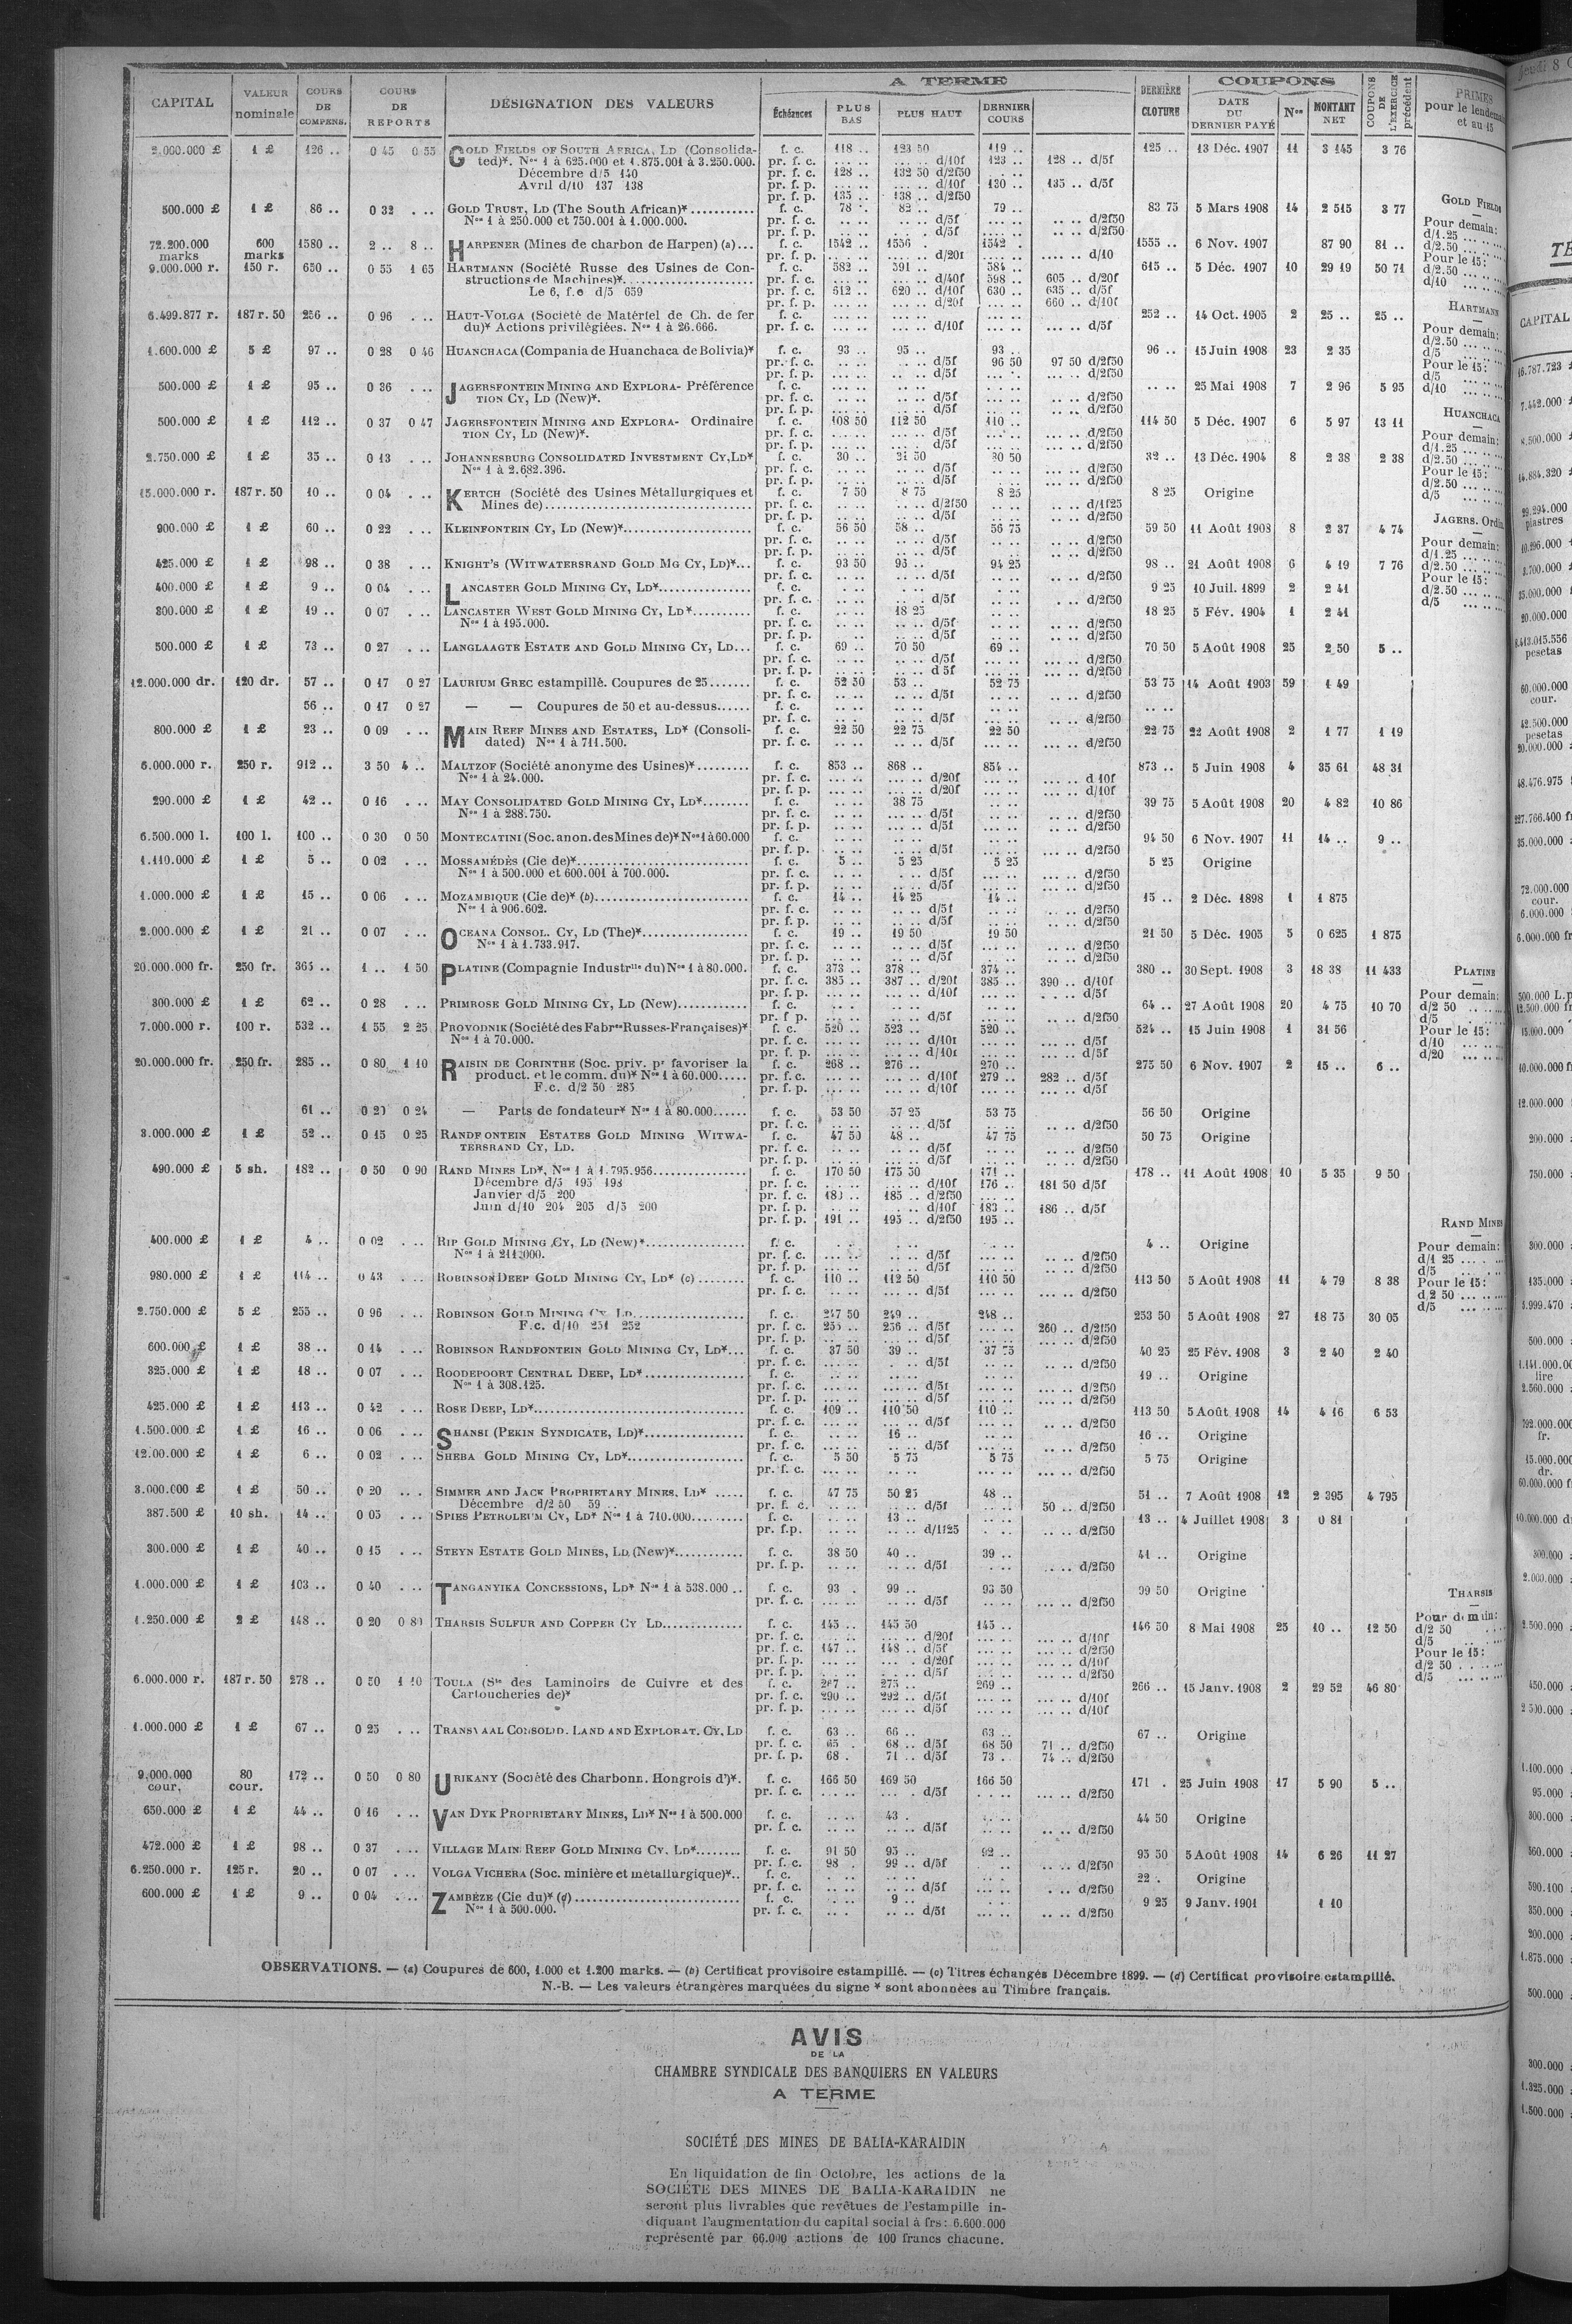 CAPITAL
VALEUR nominale
COURS DE COMPENS.
COURS DE REPORTS
DÉSIGNATION DES VALEURS
A TERME
Échéances
PLUS BAS
PLUS HAUT
DERNIER COURS
DERNIÈRE CLOTURE
COUPONS
DATE DU DERNIER PAYÉ
Nos
MONTANT NET
COUPONS DE L'EXERCICE précédent
PRIMES
pour le
et au 15
2.000.000 £ 1 £ 126 .. 0 45 0 55 GOLD FIELDS OF SOUTH AFRICA, LD (Consolida- f. c. 118 .. 123 50 119 .. 125 .. 13 Déc. 1907 11 3 145 3 76
ted)*. Nos 1 à 625.000 et 1.875.001 à 3.250.000. pr. f. c. ... .. ... .. d/10f 123 .. 128 .. d/5f
Décembre d/5 140 pr. f. c. 128 .. 132 50 d/2f50
Avril d/10 137 138 pr. f. p. ... .. ... .. d/10f 130 .. 135 .. d/5f
pr. f. p. 135 .. 138 .. d/2f50
500.000 £ 1 £ 86 .. 0 32 . .. GOLD TRUST, LD (The South African)* f. c. 78 .. 82 .. 79 .. 83 75 5 Mars 1908 14 2 515 3 77
Nos 1 à 250.000 et 750.001 à 1.000.000. pr. f. c. .. .. .. .. d/5f .. .. d/2f50
pr. f. p. .. .. d/5f .. .. d/2f50
72.200.000 marks 600 marks 1580 .. 2 .. 8 .. HARPENER (Mines de charbon de Harpen) (a)... f. c. 1542 .. 1556 . 1542 . 1555 .. 6 Nov. 1907 87 90 81 ..
pr. f. p. d/20f d/10
9.000.000 r. 150 r. 650 .. 0 55 1 65 HARTMANN (Société Russe des Usines de Con- f. c. 582 .. 591 .. 584 .. 615 .. 5 Déc. 1907 10 29 19 50 71
structions de Machines)*. pr. f. c. ... .. ... .. d/40f 598 .. 605 .. d/20f
Le 6, f.c d/5 659 pr. f. c. 612 .. 620 .. d/10f 630 .. 635 .. d/5f
pr. f. p. ... .. ... .. d/20f ... .. 660 .. d/10f
6.499.877 r. 187 r. 50 256 .. 0 96 . .. HAUT-VOLGA (Société de Matériel de Ch. de fer f. c. 252 .. 14 Oct. 1905 2 25 .. 25 ..
du)* Actions privilégiées. Nos 1 à 26.666. pr. f. c. ... .. ... .. d/10f ... .. d/5f
1.600.000 £ 5 £ 97 .. 0 28 0 46 HUANCHACA (Compania de Huanchaca de Bolivia)* f. c. 93 .. 95 .. 93 .. 96 .. 15 Juin 1908 23 2 35
pr. f. c. .. .. .. .. d/5f 96 50 97 50 d/2f50
pr. f. p. .. .. .. .. d/5f ... .. d/2f50
500.000 £ 1 £ 95 .. 0 36 . .. JAGERSFONTEIN MINING AND EXPLORA- Préférence f. c. .. .. 25 Mai 1908 7 2 96 5 95
TION CY, LD (New)*. pr. f. c. d/5f d/2f50
pr. f. p. d/5f d/2f50
500.000 £ 1 £ 112 .. 0 37 0 47 JAGERSFONTEIN MINING AND EXPLORA- Ordinaire f. c. 108 50 112 50 110 .. 114 50 5 Déc. 1907 6 5 97 13 11
TION CY, LD (New)*. pr. f. c. d/5f d/2f50
pr. f. p. d/5f d/2f50
2.750.000 £ 1 £ 35 .. 0 13 . .. JOHANNESBURG CONSOLIDATED INVESTMENT CY, LD* f. c. 30 .. 31 50 30 50 32 .. 13 Déc. 1904 8 2 38 2 38
Nos 1 à 2.682.396. pr. f. c. d/5f d/2f50
pr. f. p. d/5f d/2f50
15.000.000 r. 187 r. 50 10 .. 0 04 . .. KERTCH (Société des Usines Métallurgiques et f. c. 7 50 8 75 8 25 8 25 Origine
Mines de) pr. f. c. d/2f50 d/1f25
pr. f. p. d/5f d/2f50
900.000 £ 1 £ 60 .. 0 22 . .. KLEINFONTEIN CY, LD (New)* f. c. 56 50 58 .. 56 75 59 50 11 Août 1908 8 2 37 4 74
pr. f. c. d/5f d/2f50
pr. f. p. d/5f d/2f50
425.000 £ 1 £ 98 .. 0 38 . .. KNIGHT'S (WITWATERSRAND GOLD MG CY, LD)*... f. c. 93 50 95 .. 94 25 98 .. 21 Août 1908 6 4 19 7 76
pr. f. c. d/5f d/2f50
400.000 £ 1 £ 9 .. 0 04 . .. LANCASTER GOLD MINING CY, LD* f. c. 9 25 10 Juil. 1899 2 2 41
pr. f. c. d/5f d/2f50
300.000 £ 1 £ 19 .. 0 07 . .. LANCASTER WEST GOLD MINING CY, LD* f. c. 18 25 18 25 5 Fév. 1904 1 2 41
Nos 1 à 195.000. pr. f. c. d/5f d/2f50
pr. f. p. d/5f d/2f50
500.000 £ 1 £ 73 .. 0 27 . .. LANGLAAGTE ESTATE AND GOLD MINING CY, LD... f. c. 69 .. 70 50 69 .. 70 50 5 Août 1908 25 2 50 5 ..
pr. f. c. d/5f d/2f50
pr. f. p. d 5f d/2f50
12.000.000 dr. 120 dr. 57 .. 0 17 0 27 LAURIUM GREC estampillé. Coupures de 25 f. c. 52 50 53 .. 52 75 53 75 14 Août 1903 59 1 49
pr. f. c. d/5f d/2f50
56 .. 0 17 0 27 — — Coupures de 50 et au-dessus f. c.
pr. f. c. d/5f d/2f50
800.000 £ 1 £ 23 .. 0 09 . .. MAIN REEF MINES AND ESTATES, LD* (Consoli- f. c. 22 50 22 75 22 50 22 75 22 Août 1908 2 1 77 1 19
dated) Nos 1 à 711.500. pr. f. c. d/5f d/2f50
6.000.000 r. 250 r. 912 .. 3 50 4 .. MALTZOF (Société anonyme des Usines)* f. c. 853 .. 868 .. 854 .. 873 .. 5 Juin 1908 4 35 61 48 31
Nos 1 à 24.000. pr. f. c. d/20f d 10f
pr. f. p. d/20f d/10f
290.000 £ 1 £ 42 .. 0 16 . .. MAY CONSOLIDATED GOLD MINING CY, LD* f. c. 38 75 39 75 5 Août 1908 20 4 82 10 86
Nos 1 à 288.750. pr. f. c. d/5f d/2f50
pr. f. p. d/5f d/2f50
6.500.000 l. 100 l. 100 .. 0 30 0 50 MONTECATINI (Soc. anon. des Mines de)* Nos 1 à 60.000 f. c. 94 50 6 Nov. 1907 11 14 .. 9 ..
pr. f. p. d/5f d/2f50
1.110.000 £ 1 £ 5 .. 0 02 . .. MOSSAMÉDÈS (Cie de)* f. c. 5 .. 5 25 5 25 5 25 Origine
Nos 1 à 500.000 et 600.001 à 700.000. pr. f. c. d/5f d/2f50
pr. f. p. d/5f d/2f50
1.000.000 £ 1 £ 15 .. 0 06 . .. MOZAMBIQUE (Cie de)* (b) f. c. 14 .. 14 25 14 .. 15 .. 2 Déc. 1898 1 1 875
Nos 1 à 906.602. pr. f. c. d/5f d/2f50
pr. f. p. d/5f d/2f50
2.000.000 £ 1 £ 21 .. 0 07 . .. OCEANA CONSOL. CY, LD (The)* f. c. 19 .. 19 50 19 50 21 50 5 Déc. 1905 5 0 625 1 875
Nos 1 à 1.733.917. pr. f. c. d/5f d/2f50
pr. f. p. d/5f d/2f50
20.000.000 fr. 250 fr. 365 .. 1 .. 1 50 PLATINE (Compagnie Industrlle du) Nos 1 à 80.000. f. c. 373 .. 378 .. 374 .. 380 .. 30 Sept. 1908 3 18 38 11 433
pr. f. c. 385 .. 387 .. d/20f 385 .. 390 .. d/10f
pr. f. p. d/10f d/5f
300.000 £ 1 £ 62 .. 0 28 . .. PRIMROSE GOLD MINING CY, LD (New) f. c. 64 .. 27 Août 1908 20 4 75 10 70
pr. f p. d/5f d/2f50
7.000.000 r. 100 r. 532 .. 1 55 2 25 PROVODNIK (Société des Fabres Russes-Françaises)* f. c. 520 .. 523 .. 520 .. 524 .. 15 Juin 1908 1 31 56
Nos 1 à 70.000. pr. f. c. d/10f d/5f
pr. f. p. d/10f d/5f
20.000.000 fr. 250 fr. 285 .. 0 80 1 10 RAISIN DE CORINTHE (Soc. priv. pr favoriser la f. c. 268 .. 276 .. 270 .. 275 50 6 Nov. 1907 2 15 .. 6 ..
product. et le comm. du)* Nos 1 à 60.000 pr. f. c. d/10f 279 .. 282 .. d/5f
F.c. d/2 50 285 pr. f. p. d/10f d/5f
61 .. 0 20 0 24 — Parts de fondateur* Nos 1 à 80.000 f. c. 53 50 57 25 53 75 56 50 Origine
pr. f. c. d/5f d/2f50
3.000.000 £ 1 £ 52 .. 0 15 0 25 RANDFONTEIN ESTATES GOLD MINING WITWA- f. c. 47 50 48 .. 47 75 50 75 Origine
TERSRAND CY, LD. pr. f. c. d/5f d/2f50
pr. f. p. d/5f d/2f50
490.000 £ 5 sh. 182 .. 0 50 0 90 RAND MINES LD*, Nos 1 à 1.795.956 f. c. 170 50 175 50 171 .. 178 .. 11 Août 1908 10 5 35 9 50
Décembre d/5 195 198 pr. f. c. d/10f 176 .. 181 50 d/5f
Janvier d/5 200 pr. f. c. 183 .. 185 .. d/2f50
Juin d/10 204 205 d/5 200 pr. f. p. d/10f 183 .. 186 .. d/5f
pr. f. p. 191 .. 195 .. d/2f50 195 ..
400.000 £ 1 £ 4 .. 0 02 . .. RIP GOLD MINING CY, LD (New)* f. c. 4 .. Origine
Nos 1 à 211.000. pr. f. c. d/5f d/2f50
pr. f. p. d/5f d/2f50
980.000 £ 1 £ 114 .. 0 43 . .. ROBINSON DEEP GOLD MINING CY, LD* (c) f. c. 110 .. 112 50 110 50 113 50 5 Août 1908 11 4 79 8 38
pr. f. c. d/5f d/2f50
2.750.000 £ 5 £ 255 .. 0 96 . .. ROBINSON GOLD MINING CY LD f. c. 247 50 249 .. 248 .. 253 50 5 Août 1908 27 18 75 30 05
F.c. d/10 251 252 pr. f. c. 255 .. 256 .. d/5f 260 .. d/2f50
pr. f. p. d/5f d/2f50
600.000 £ 1 £ 38 .. 0 14 . .. ROBINSON RANDFONTEIN GOLD MINING CY, LD*... f. c. 37 50 39 .. 37 75 40 25 25 Fév. 1908 3 2 40 2 40
pr. f. c. d/5f d/2f50
325.000 £ 1 £ 18 .. 0 07 . .. ROODEPOORT CENTRAL DEEP, LD* f. c. 19 .. Origine
Nos 1 à 308.125. pr. f. c. d/5f d/2f50
pr. f. p. d/5f d/2f50
425.000 £ 1 £ 113 .. 0 42 . .. ROSE DEEP, LD* f. c. 109 .. 110 50 110 .. 113 50 5 Août 1908 14 4 16 6 53
pr. f. c. d/5f d/2f50
1.500.000 £ 1 £ 16 .. 0 06 . .. SHANSI (PEKIN SYNDICATE, LD)* f. c. 16 .. 16 .. Origine
pr. f. c. d/5f d/2f50
12.00.000 £ 1 £ 6 .. 0 02 . .. SHEBA GOLD MINING CY, LD* f. c. 5 50 5 75 5 75 5 75 Origine
pr. f. c. d/2f50
3.000.000 £ 1 £ 50 .. 0 20 .. . SIMMER AND JACK PROPRIETARY MINES, LD* f. c. 47 75 50 25 48 .. 51 .. 7 Août 1908 12 2 395 4 795
Décembre d/2 50 59 .. pr. f. c. d/5f 50 .. d/2f50
387.500 £ 10 sh. 14 .. 0 05 . .. SPIES PETROLEUM CY, LD* Nos 1 à 710.000 f. c. 13 .. 13 .. 4 Juillet 1908 3 0 81
pr. f.p. d/1f25 d/2f50
300.000 £ 1 £ 40 .. 0 15 . .. STEYN ESTATE GOLD MINES, LD (New)* f. c. 38 50 40 .. 39 .. 41 .. Origine
pr. f. p. d/5f d/2f50
1.000.000 £ 1 £ 103 .. 0 40 . .. TANGANYIKA CONCESSIONS, LD* Nos 1 à 538.000 .. f. c. 93 . 99 .. 93 50 99 50 Origine
pr. f. c. d/5f d/2f50
1.250.000 £ 2 £ 148 .. 0 20 0 80 THARSIS SULFUR AND COPPER CY LD f. c. 145 .. 145 50 145 .. 146 50 8 Mai 1908 25 10 .. 12 50
pr. f. c. d/20f d/10f
pr. f. c. 147 .. 148 .. d/5f d/2f50
pr. f. p. d/20f d/10f
pr. f. p. d/5f d/2f50
6.000.000 r. 187 r. 50 278 .. 0 50 1 10 TOULA (Sté des Laminoirs de Cuivre et des f. c. 267 .. 275 .. 269 .. 266 .. 15 Janv. 1908 2 29 52 46 80
Cartoucheries de)* pr. f. c. 290 .. 292 .. d/5f d/10f
pr. f. p. d/5f d/10f
1.000.000 £ 1 £ 67 .. 0 25 . .. TRANSVAAL CONSOLID. LAND AND EXPLORAT. CY, LD f. c. 63 .. 66 .. 63 .. 67 .. Origine
pr. f. c. 65 . 68 .. d/5f 68 50 71 .. d/2f50
pr. f. p. 68 . 71 .. d/5f 73 . 74 .. d/2f50
9.000.000 cour. 80 cour. 172 .. 0 50 0 80 URIKANY (Société des Charbonn. Hongrois d')*. f. c. 166 50 169 50 166 50 171 . 25 Juin 1908 17 5 90 5 ..
pr. f. c. d/5f d/2f50
650.000 £ 1 £ 44 .. 0 16 . .. VAN DYK PROPRIETARY MINES, LD* Nos 1 à 500.000 f. c. 43 . 44 50 Origine
pr. f. c. d/5f d/2f50
472.000 £ 1 £ 98 .. 0 37 . .. VILLAGE MAIN REEF GOLD MINING CY, LD* f. c. 91 50 95 .. 92 .. 95 50 5 Août 1908 14 6 26 11 27
pr. f. c. 98 . 99 .. d/5f d/2f50
6.250.000 r. 125 r. 20 .. 0 07 . .. VOLGA VICHERA (Soc. minière et métallurgique)*.. f. c. 22 . Origine
pr. f. c. d/5f d/2f50
600.000 £ 1 £ 9 .. 0 04 . .. ZAMBÈZE (Cie du)* (d) f. c. 9 .. 9 25 9 Janv. 1901 1 10
Nos 1 à 500.000. pr. f. c. d/5f d/2f50
GOLD FIELDS
Pour demain:
d/1.25
d/2.50
Pour le 15:
d/2.50
d/10
HARTMANN
Pour demain:
d/2.50
d/5
Pour le 15:
d/5
d/10
HUANCHACA
Pour demain:
d/1.25
d/2.50
Pour le 15:
d/2.50
d/5
JAGERS. Ordin
Pour demain:
d/1.25
d/2.50
Pour le 15:
d/2.50
d/5
PLATINE
Pour demain:
d/2 50
d/5
Pour le 15:
d/10
d/20
RAND MINES
Pour demain:
d/1 25
d/5
Pour le 15:
d 2 50
d/5
THARSIS
Pour demain:
d/2 50
d/5
Pour le 15:
d/2 50
d/5
OBSERVATIONS. — (a) Coupures de 600, 1.000 et 1.200 marks. — (b) Certificat provisoire estampillé. — (c) Titres échangés Décembre 1899. — (d) Certificat provisoire estampillé.
N.-B. — Les valeurs étrangères marquées du signe * sont abonnées au Timbre français.
AVIS
DE LA
CHAMBRE SYNDICALE DES BANQUIERS EN VALEURS
A TERME
SOCIÉTÉ DES MINES DE BALIA-KARAIDIN
En liquidation de fin Octobre, les actions de la
SOCIÉTÉ DES MINES DE BALIA-KARAIDIN ne
seront plus livrables que revêtues de l'estampille in-
diquant l'augmentation du capital social à frs: 6.600.000
représenté par 66.000 actions de 100 francs chacune.
Jeudi 8
CAPITAL